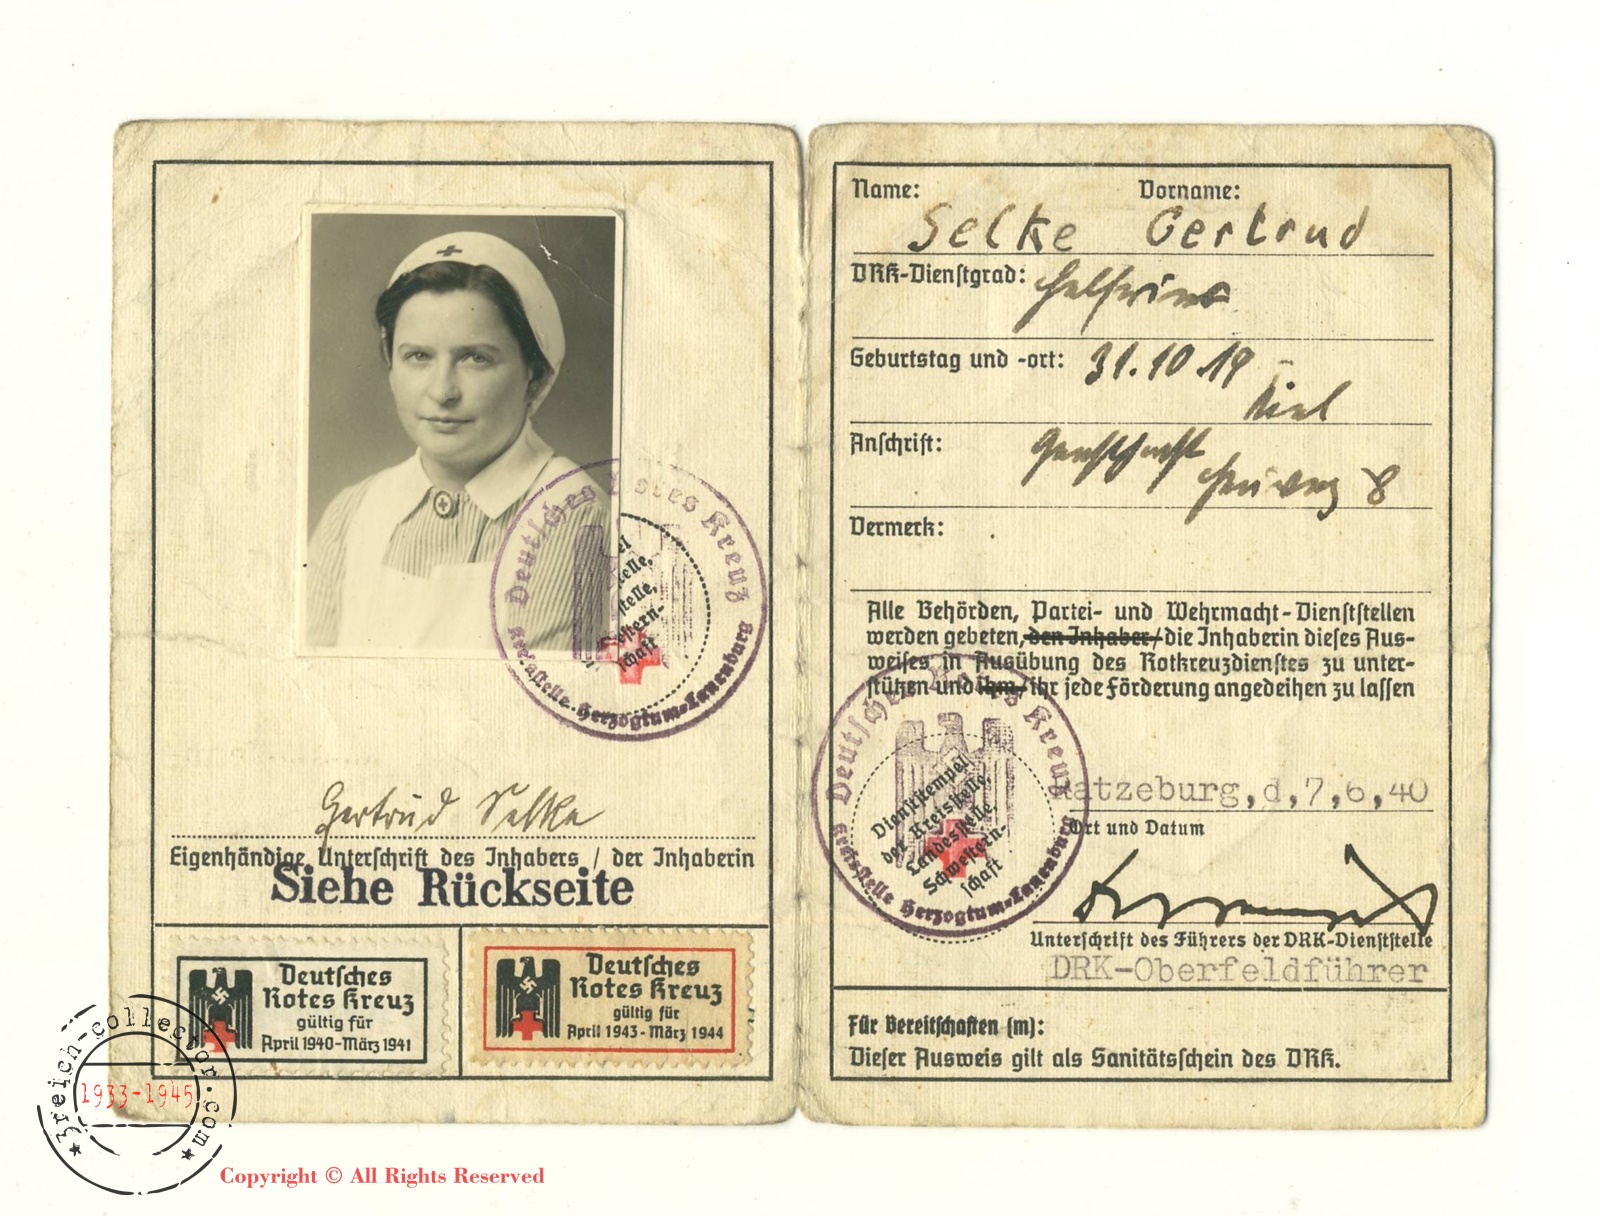 Deutsches Rotes Kreuz
Kreisstelle Herzogtum-Lauenburg
Gertrud Selke
Eigenhändige Unterschrift des Inhabers / der Inhaberin
Siehe Rückseite
Deutsches
Rotes Kreuz
gültig für
April 1940-März 1941
Deutsches
Rotes Kreuz
gültig für
April 1943-März 1944
Name: Vorname:
Selke Gertrud
DRK-Dienstgrad: Helferin
Geburtstag und -ort: 31.10.19
Kiel
Anschrift: Geesthacht
Heuweg 8
Vermerk:
Alle Behörden, Partei- und Wehrmacht-Dienststellen
werden gebeten, den Inhaber/die Inhaberin dieses Aus-
weises in Ausübung des Rotkreuzdienstes zu unter-
stützen und ihm/ihr jede Förderung angedeihen zu lassen
Deutsches Rotes Kreuz
Dienststempel
der Kreisstelle,
Landesstelle,
Schwestern-
schaft
Kreisstelle Herzogtum-Lauenburg
Ratzeburg,d,7,6,40
Ort und Datum
Unterschrift des Führers der DRK-Dienststelle
DRK-Oberfeldführer
Für Bereitschaften (m):
Dieser Ausweis gilt als Sanitätsschein des DRK.
3reich-collector.com
1933-1945
Copyright © All Rights Reserved